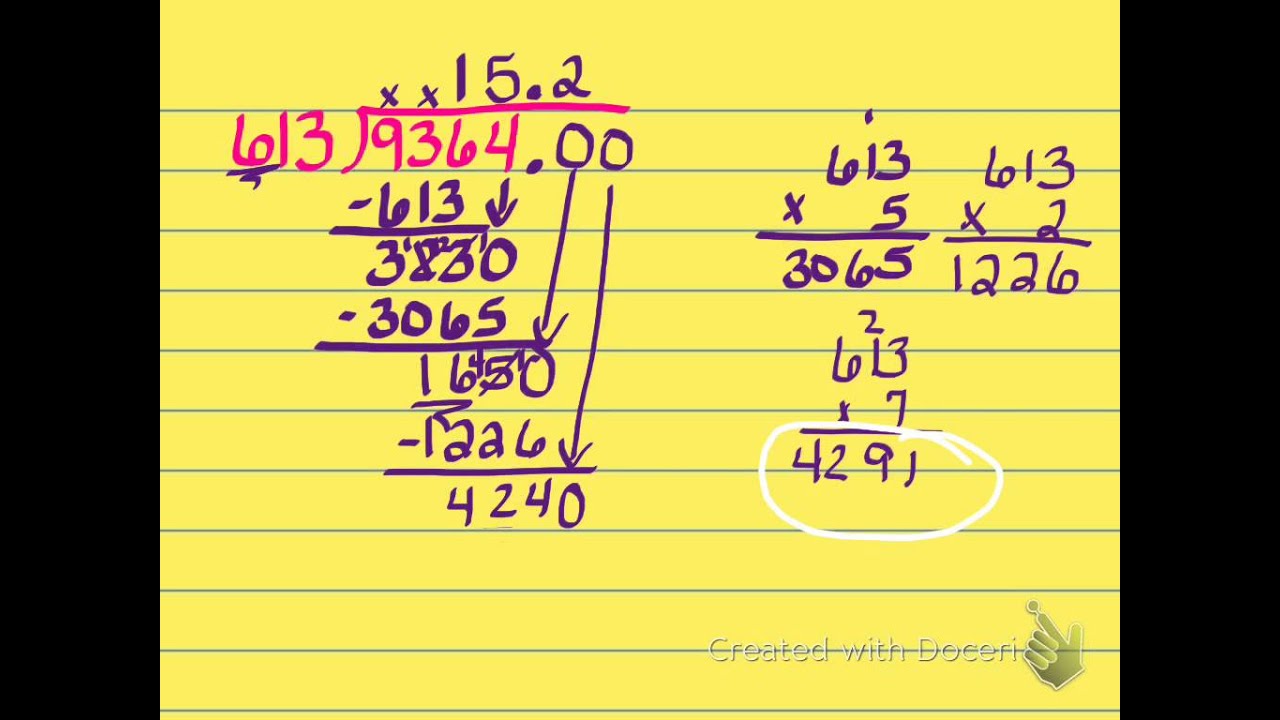 x x 15.2
613)9364.00
-613
3830
-3065
1650
-1226
4240
1
613
x 5
3065
613
x 2
1226
2
613
x 7
4291
Created with Doceri